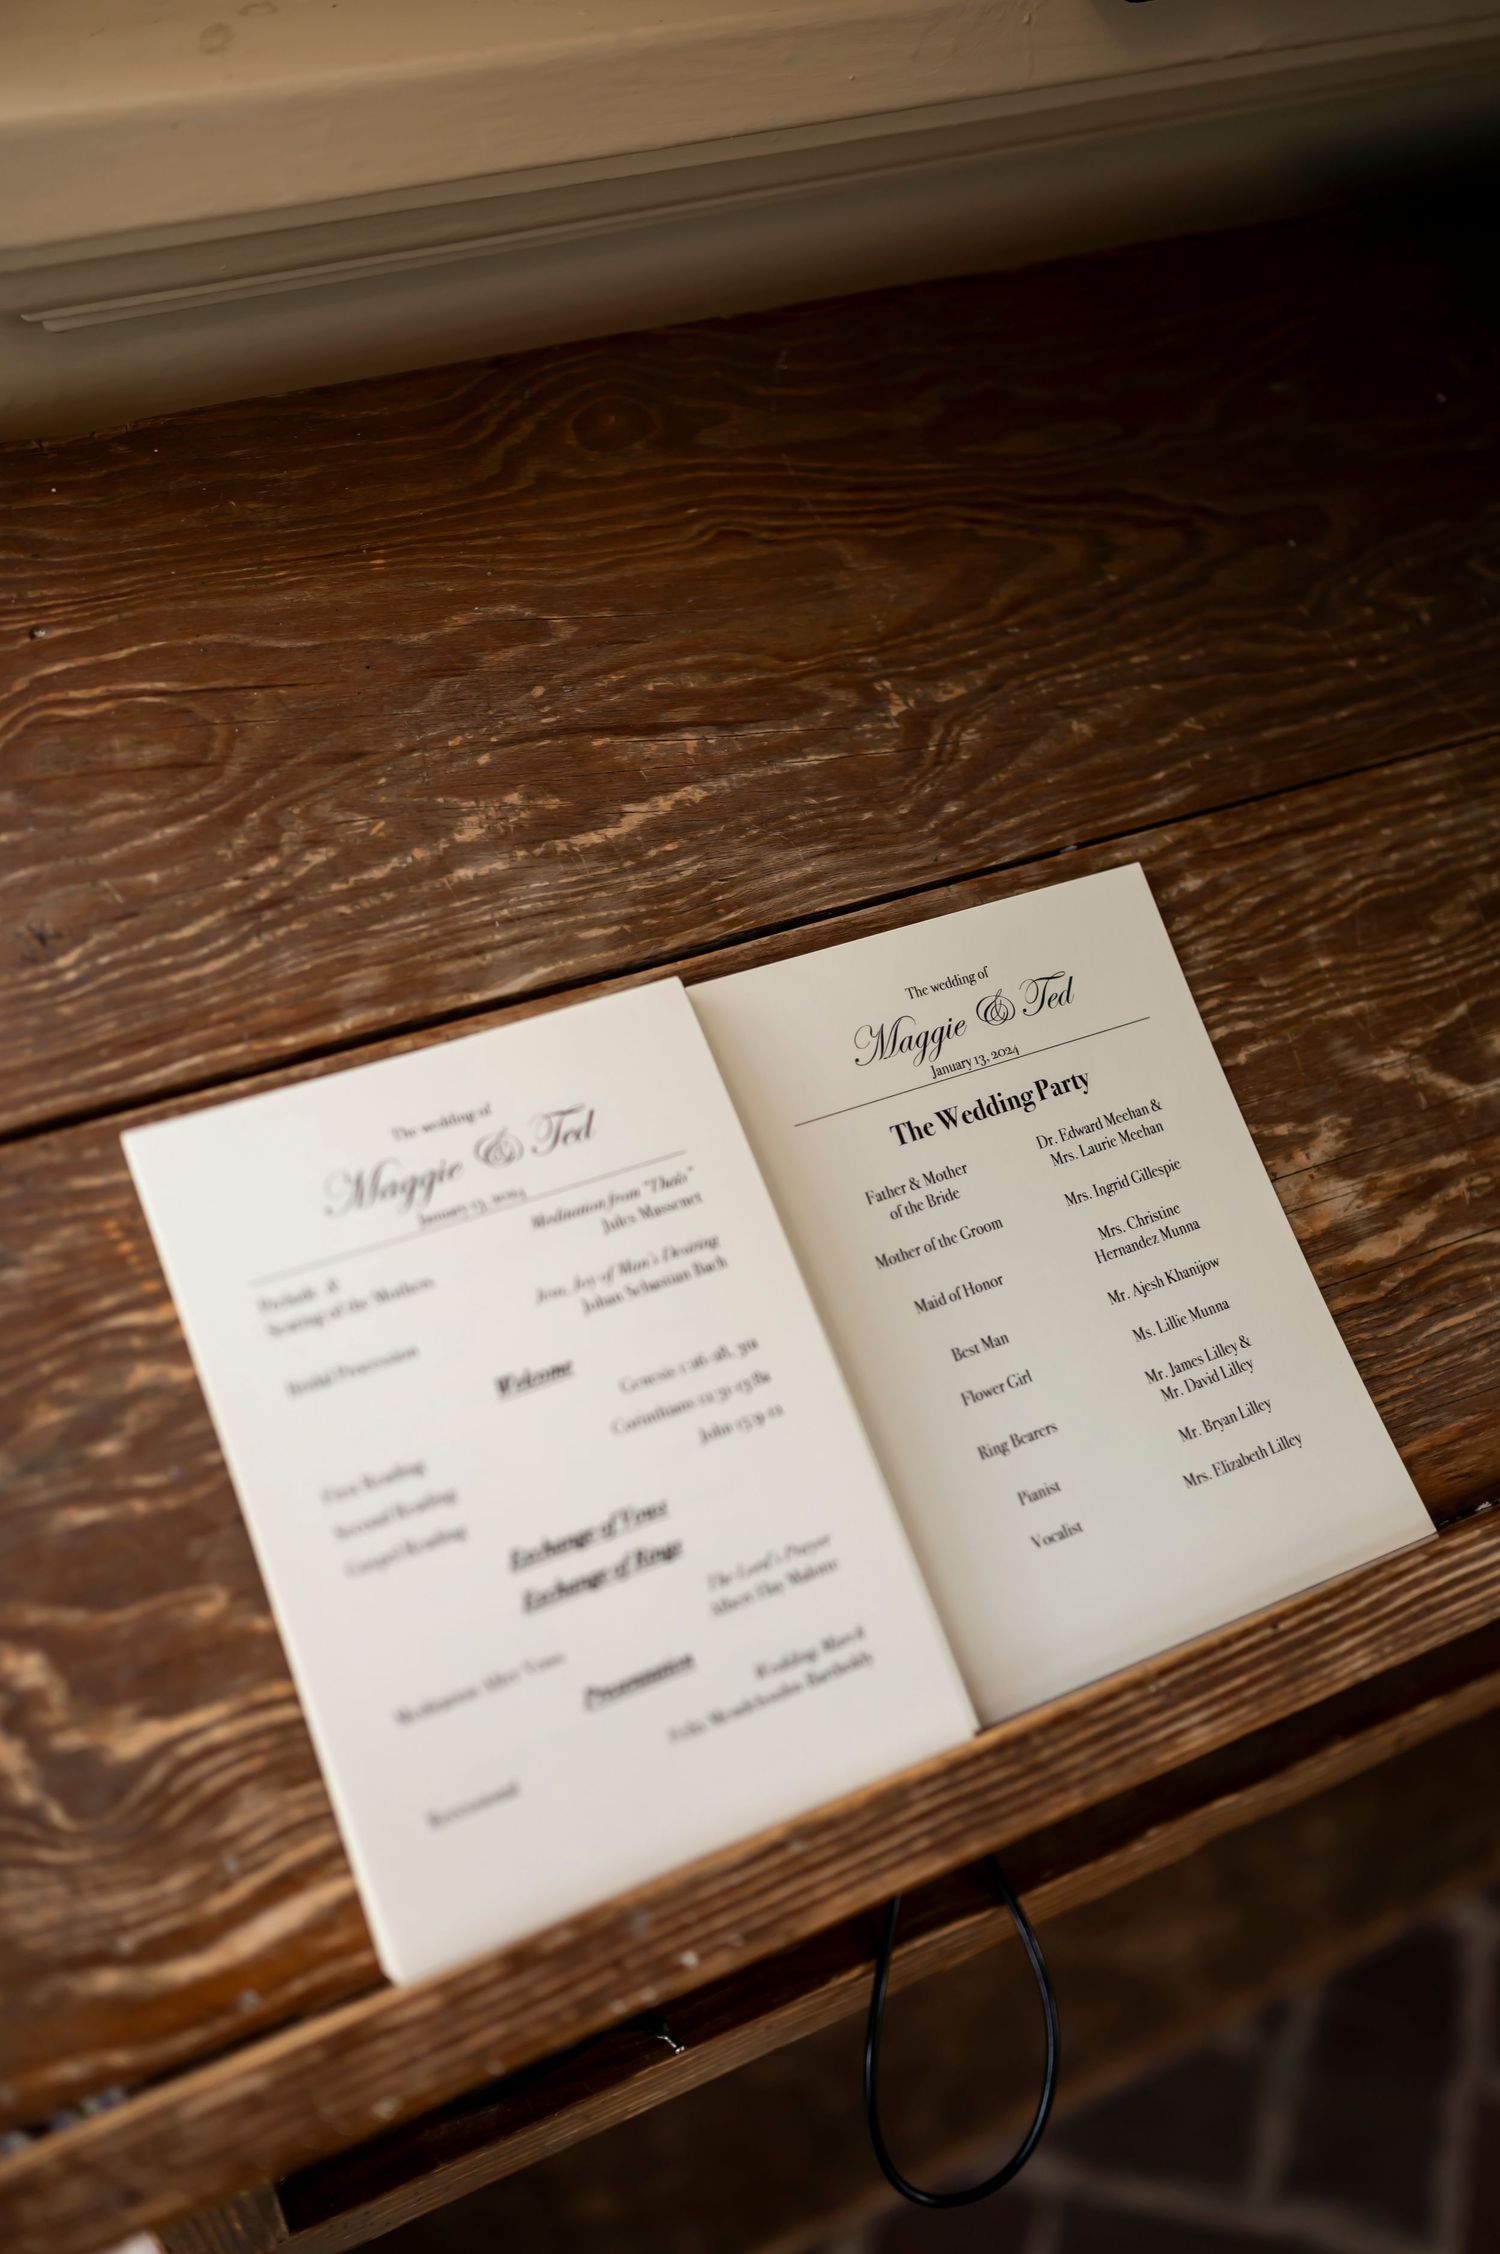 The wedding of
Maggie & Ted
January 13, 2024
Meditation from "Thaïs"
Jules Massenet
Prelude &
Seating of the Mothers
Jesu, Joy of Man's Desiring
Johan Sebastian Bach
Bridal Procession
Welcome
First Reading
Genesis 1:26-28, 31a
Second Reading
Corinthians 12:31-13:8a
Gospel Reading
John 15:9-12
Exchange of Vows
Exchange of Rings
The Lord's Prayer
Albert Hay Malotte
Meditation After Vows
Presentation
Wedding March
Felix Mendelssohn Bartholdy
Recessional
The wedding of
Maggie & Ted
January 13, 2024
The Wedding Party
Father & Mother
of the Bride
Dr. Edward Meehan &
Mrs. Laurie Meehan
Mother of the Groom
Mrs. Ingrid Gillespie
Maid of Honor
Mrs. Christine
Hernandez Munna
Best Man
Mr. Ajesh Khanijow
Flower Girl
Ms. Lillie Munna
Ring Bearers
Mr. James Lilley &
Mr. David Lilley
Pianist
Mr. Bryan Lilley
Vocalist
Mrs. Elizabeth Lilley